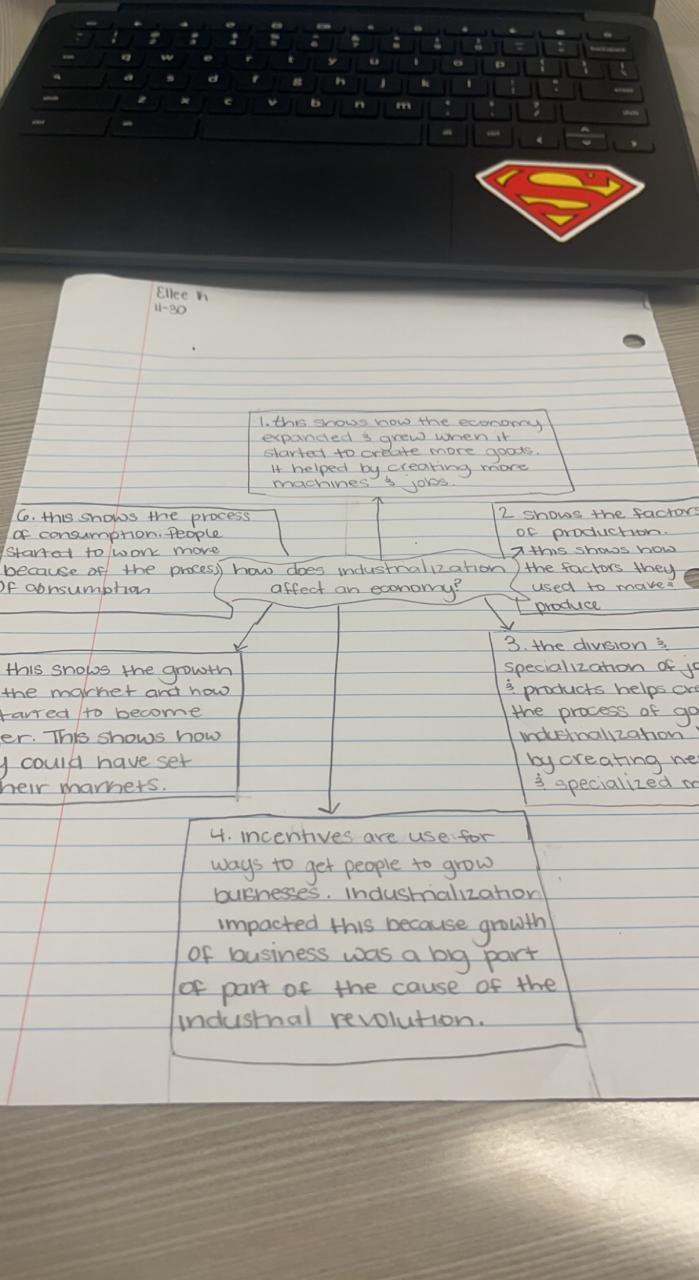 Ellee n
11-30
1. this shows how the economy
expanded & grew when it
started to create more goods.
It helped by creating more
machines & jobs.
6. this shows the process
of consumption. People
started to work more
because of the process
of consumption
2 shows the factors
of production.
this shows how
the factors they
used to make &
produce
how does industrialization
affect an economy?
this shows the growth
the market and how
tarted to become
er. This shows how
y could have set
heir markets.
3. the division &
specialization of jo
& products helps cre
the process of go
industrialization
by creating ne
& specialized
4. incentives are use for
ways to get people to grow
businesses. Industrialization
impacted this because growth
of business was a big part
of part of the cause of the
industrial revolution.